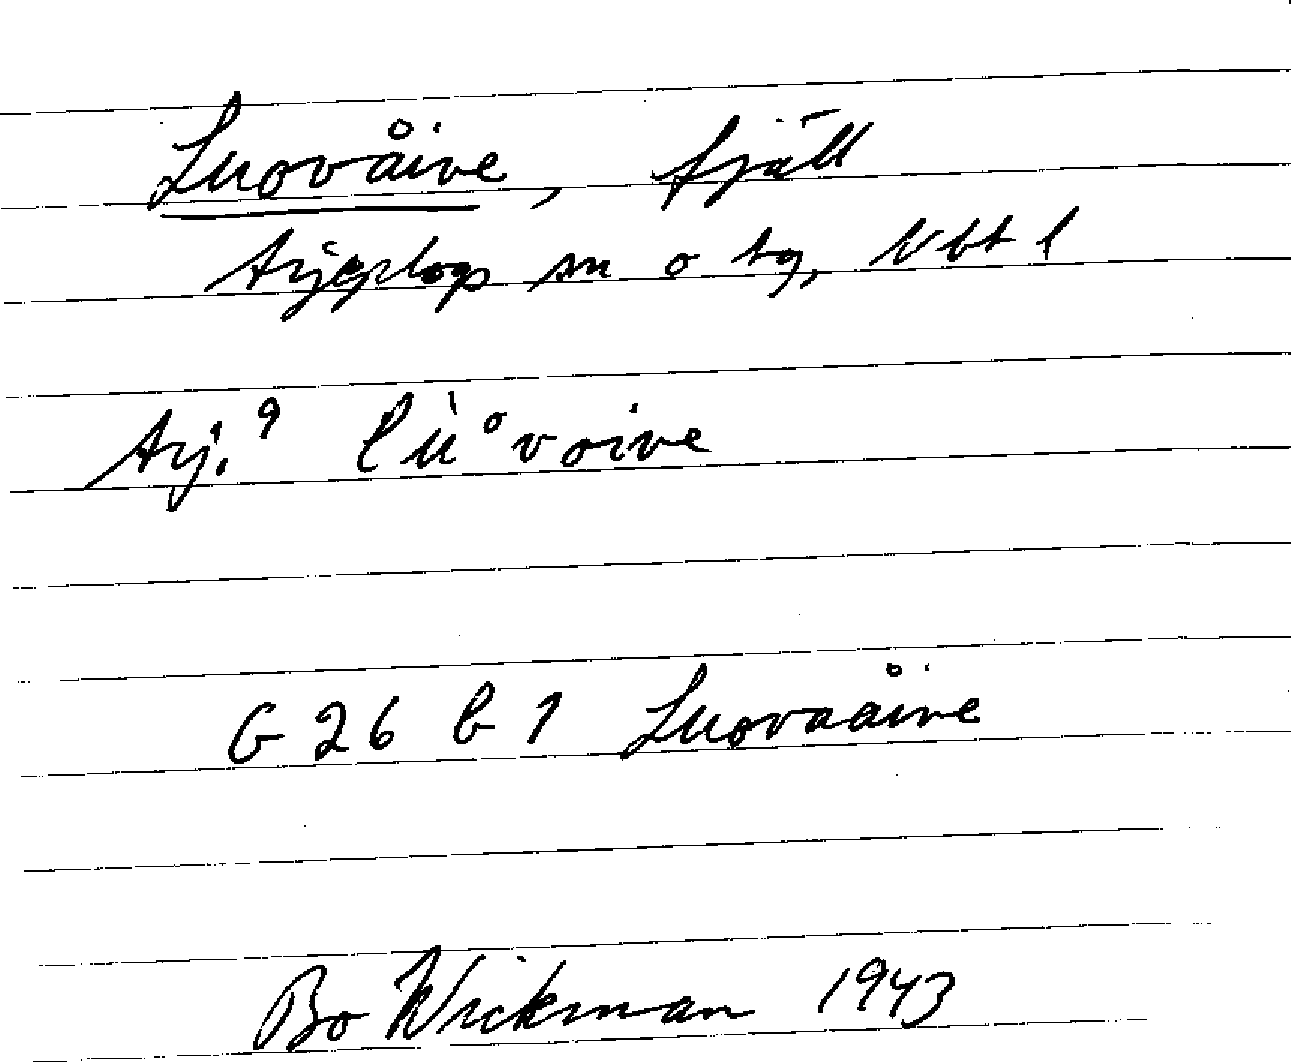 Luovåive, fjäll
Arjeplogs sn o tg, Vbt l
Arj. 9 lu̇̀°voive
G 26 b 1 Luovaåive
Bo Wickman 1943